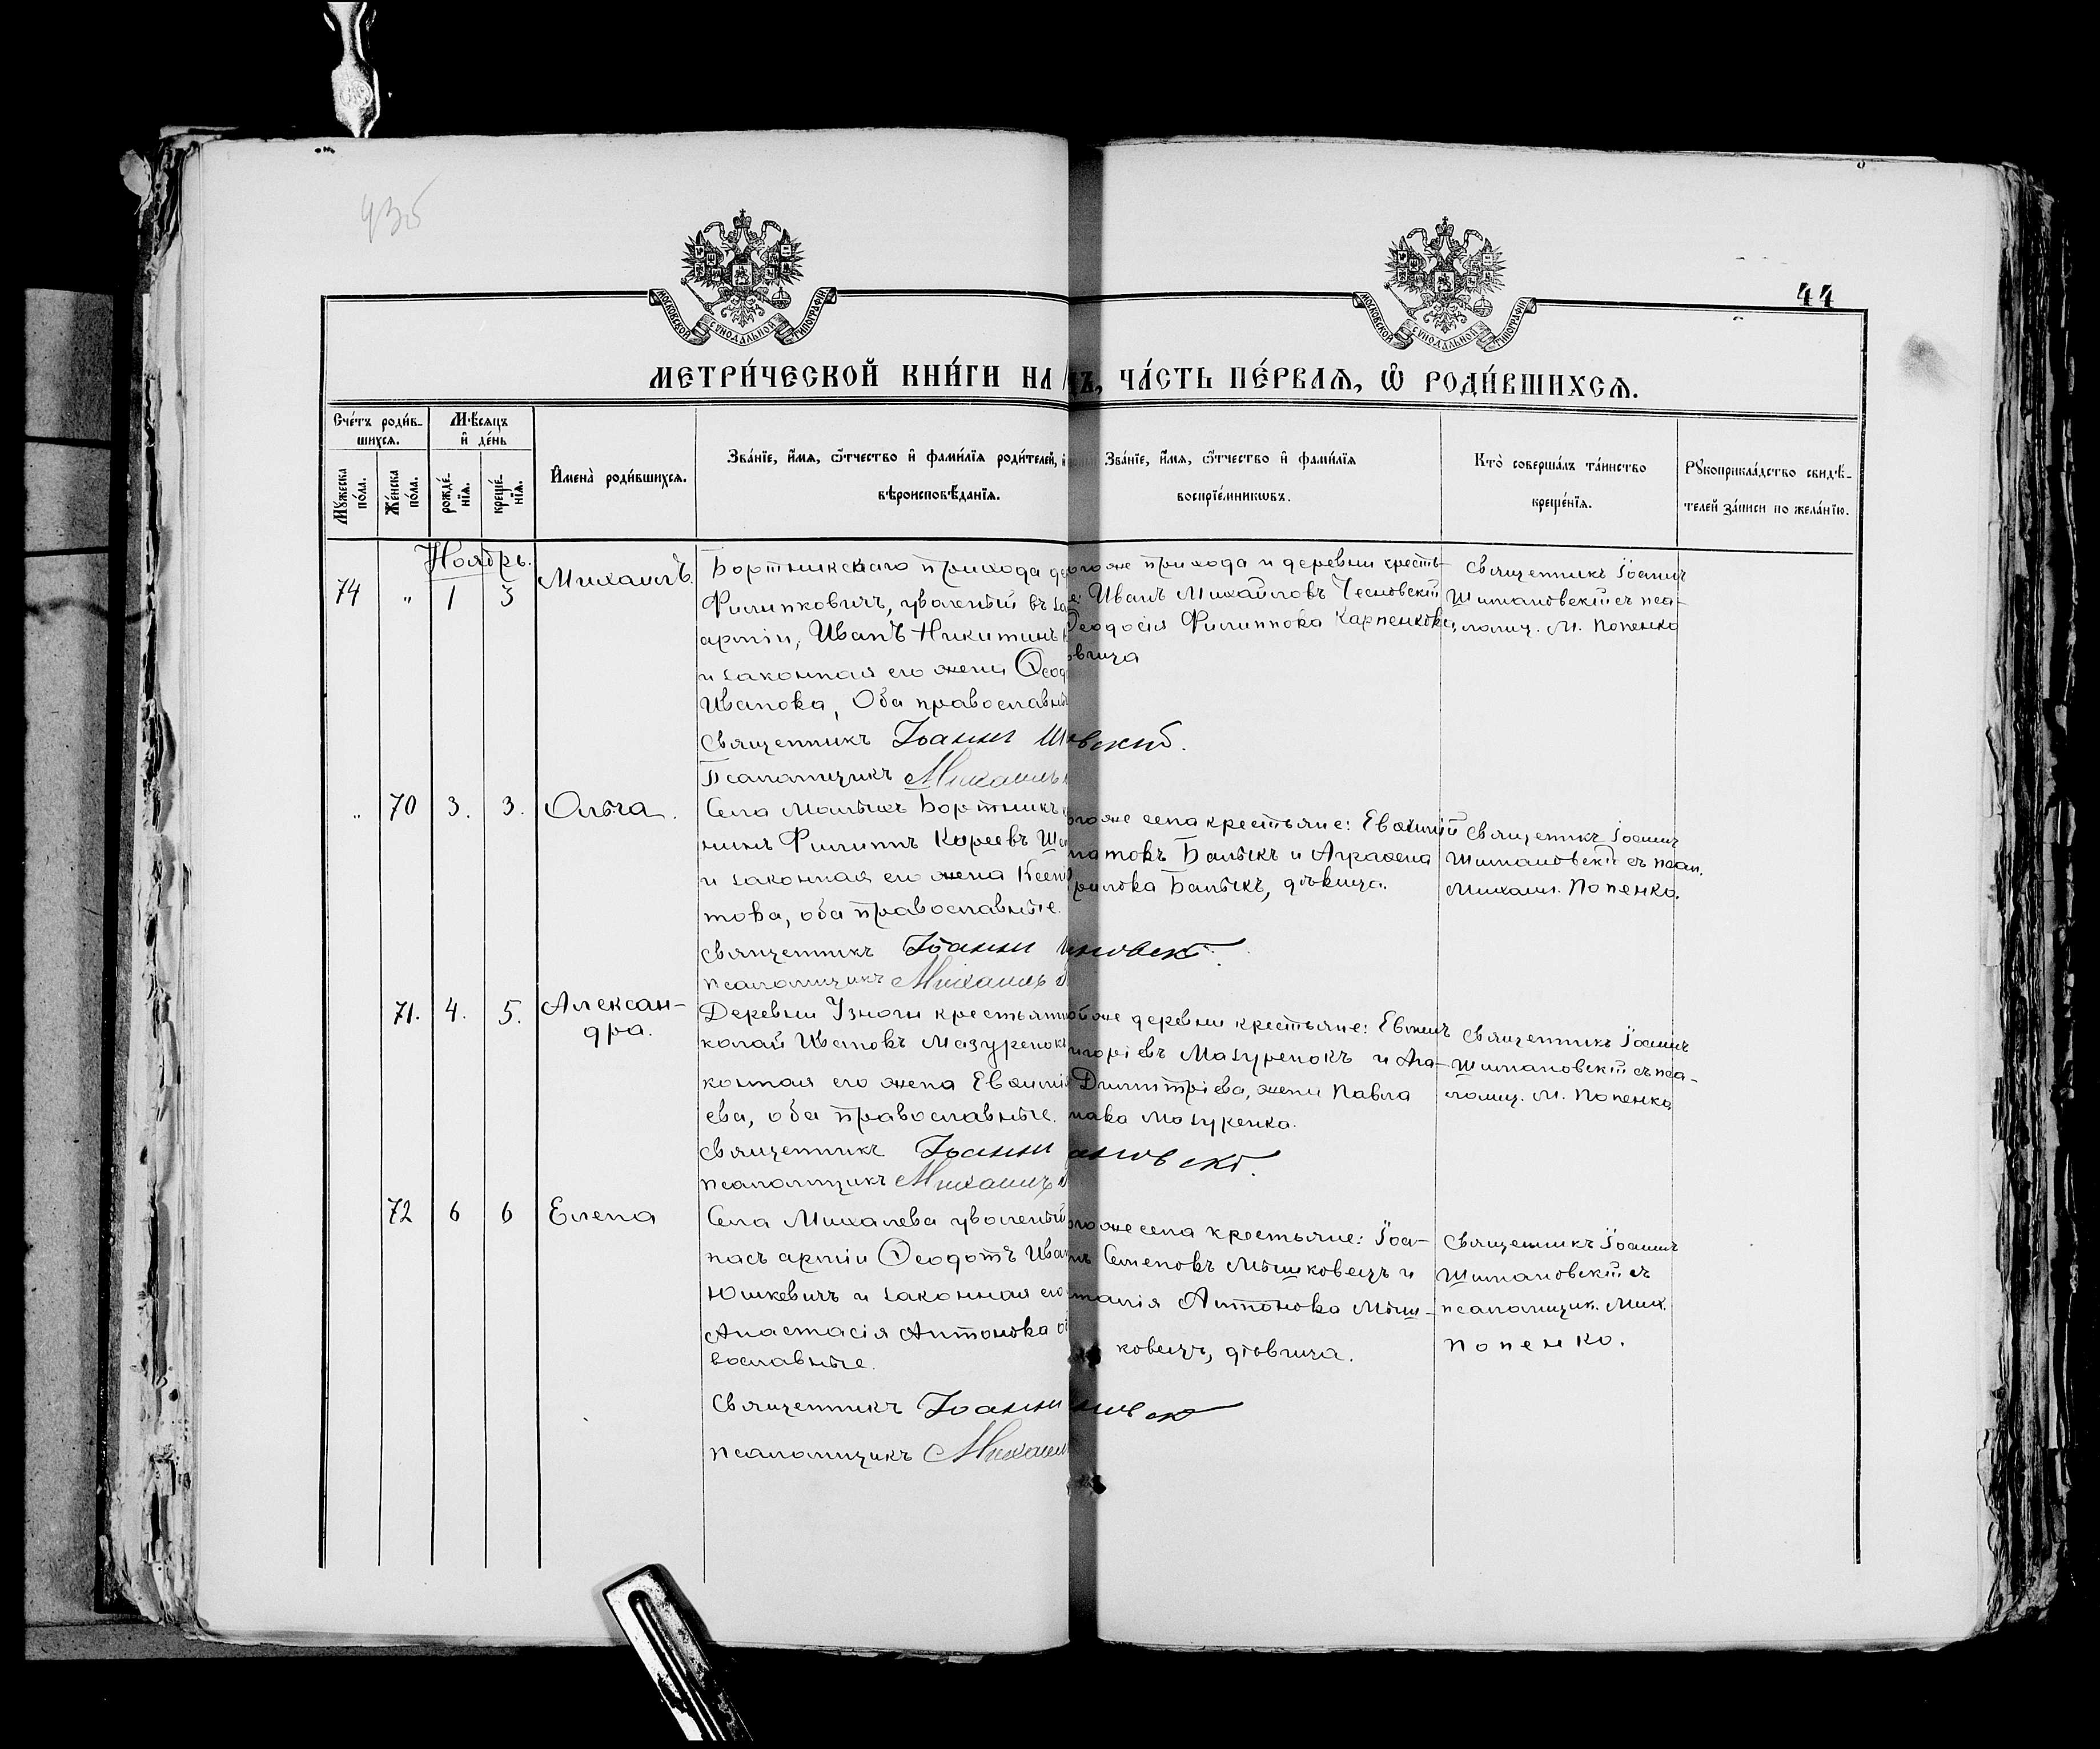 935
МОСКОВСКОЙ СѴНОДАЛЬНОЙ ТИПОГРАФІИ
МОСКОВСКОЙ СѴНОДАЛЬНОЙ ТИПОГРАФІИ
44
МЕТРИ́ЧЕСКОЙ КНИ́ГИ НА
ЧА́СТЬ ПЕ́РВАѦ, Ѽ РОДИ́ВШИХСѦ.
Сче́тъ роди́в-
шихсѧ.
Мѣ́сѧцъ
и҆ де́нь
Мꙋ́жеска по́ла.
Же́нска по́ла.
рожде́-
нїѧ.
креще́-
нїѧ.
И҆мена̀ роди́вшихсѧ.
Зва́нїе, и҆́мѧ, ѻ҆́тчество и҆ фами́лїѧ роди́телей,
вѣроисповѣ́данїѧ.
Зва́нїе, и҆́мѧ, ѻ҆́тчество и҆ фами́лїѧ
воспрїе́мникѡвъ.
Кто̀ соверша́лъ та́инство
креще́нїѧ.
Рꙋкоприкла́дство свидѣ́-
телей за́писи по жела́нїю.
Ноябрь.
74 „ 1 3 Михаилъ
Бортникскаго прихода
Филипковичъ, уволенный въ
арміи, Иванъ Никитинъ
и законная его жена
Иванова, Оба православ
Священникъ Іоанн
Псаломщикъ Михаилъ
же прихода и деревни кресть-
Иванъ Михайловъ
Ѳеодосія Филиппова Карпенкова,
Священникъ Іоаннъ
Шимановскій съ пса-
ломщ. М. Попенко
„ 70 3. 3. Ольга.
Села Малыхъ Бортникъ
нинъ Филиппъ Киреевъ
и законная его жена
това, оба православные.
Священникъ Іоанн
псаломщикъ Михаилъ
же села крестьяне: Евѳимій
Балыкъ и Аграфена
Балыкъ, дѣвица.
Священникъ Іоаннъ
Шимановскій съ псал.
Михаил. Попенко.
71. 4. 5. Алексан-
дра.
Деревни Узноги крестьян
колай Ивановъ Мазуренокъ
конная его жена Евѳимія
ева, оба православные.
Священникъ Іоанн
псаломщикъ Михаилъ
же деревни крестьяне:
Мазуренокъ и Ага-
Димитріева, жена Павла
Мазуренка.
Священникъ Іоаннъ
Шимановскій съ пса-
ломщ. М. Попенко
72 6 6 Елена
Села Михалева уволенный
пасъ арміи Ѳеодотъ
Юшкевичъ и законная его
Анастасія Антонова
вославные.
Священникъ Іоанн
псаломщикъ Михаил
же села крестьяне: Іоа-
Семеновъ Мышковецъ и
Антонова Мыш-
ковецъ, дѣвица.
Священникъ Іоаннъ
Шимановскій съ
псаломщик. Мих.
Попенко.